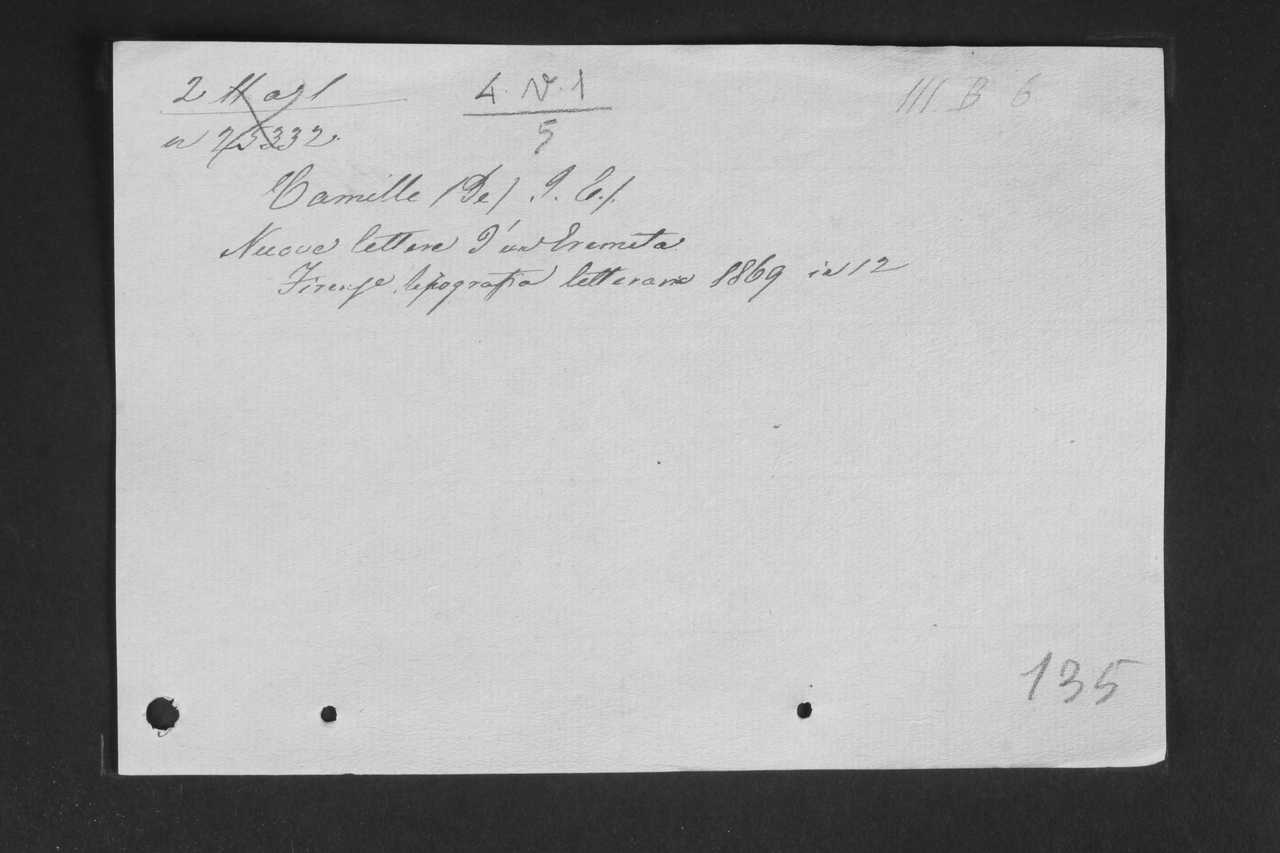 2 H a 1
4. V. 1
III B 6
n 25332.
5
Camille (De) I. C.).
Nuove lettere d'un Eremita
Firenze tipografia letteraria 1869 in 12
135